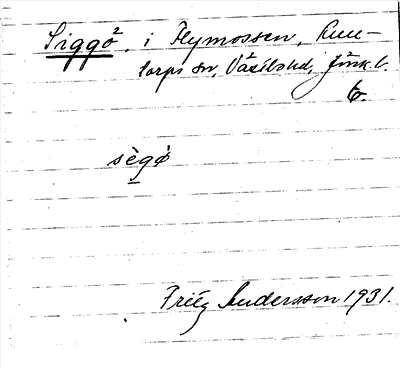 Siggö², i Flymossen, Rum-
torps sn, Västbod, Jönk. l.
to.
sègö
Fritz Andersson 1931.